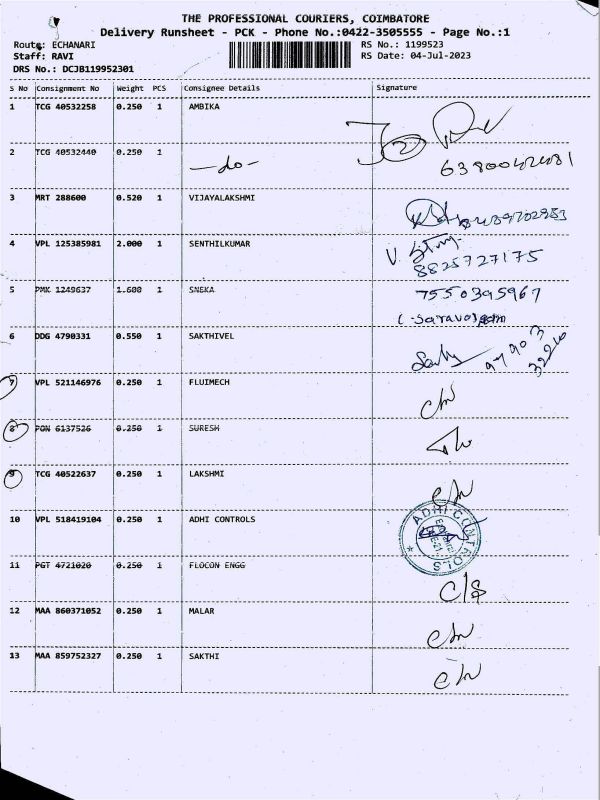 THE PROFESSIONAL COURIERS, COIMBATORE
Delivery Runsheet - PCK - Phone No.:0422-3505555 - Page No.:1
Route: ECHANARI RS No.: 1199523
Staff: RAVI RS Date: 04-Jul-2023
DRS No.: DCJB119952301
S No Consignment No Weight PCS Consignee Details Signature
1 TCG 40532258 0.250 1 AMBIKA
2 TCG 40532440 0.250 1 -do-
3 MRT 288600 0.520 1 VIJAYALAKSHMI
4 VPL 125385981 2.000 1 SENTHILKUMAR
8825727175
5 PMK 1249637 1.600 1 SNEKA 7550395967
6 DDG 4790331 0.550 1 SAKTHIVEL
7 VPL 521146976 0.250 1 FLUIMECH
8 PON 6137526 0.250 1 SURESH
9 TCG 40522637 0.250 1 LAKSHMI
10 VPL 518419104 0.250 1 ADHI CONTROLS
ADHI CONTROLS
11 PGT 4721020 0.250 1 FLOCON ENGG
12 MAA 860371052 0.250 1 MALAR
13 MAA 859752327 0.250 1 SAKTHI